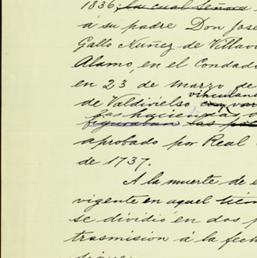 1836, la cual Señora
á su padre Don José
Gallo Núñez de Villav
Alamo, en el Condad
en 23 de Marzo de
vinculand
de Valdivielso
las haciendas
figuraban las
aprobado por Real
de 1737.
A la muerte de e
vigente en aquel
se dividió en dos p
trasmisión á la fech